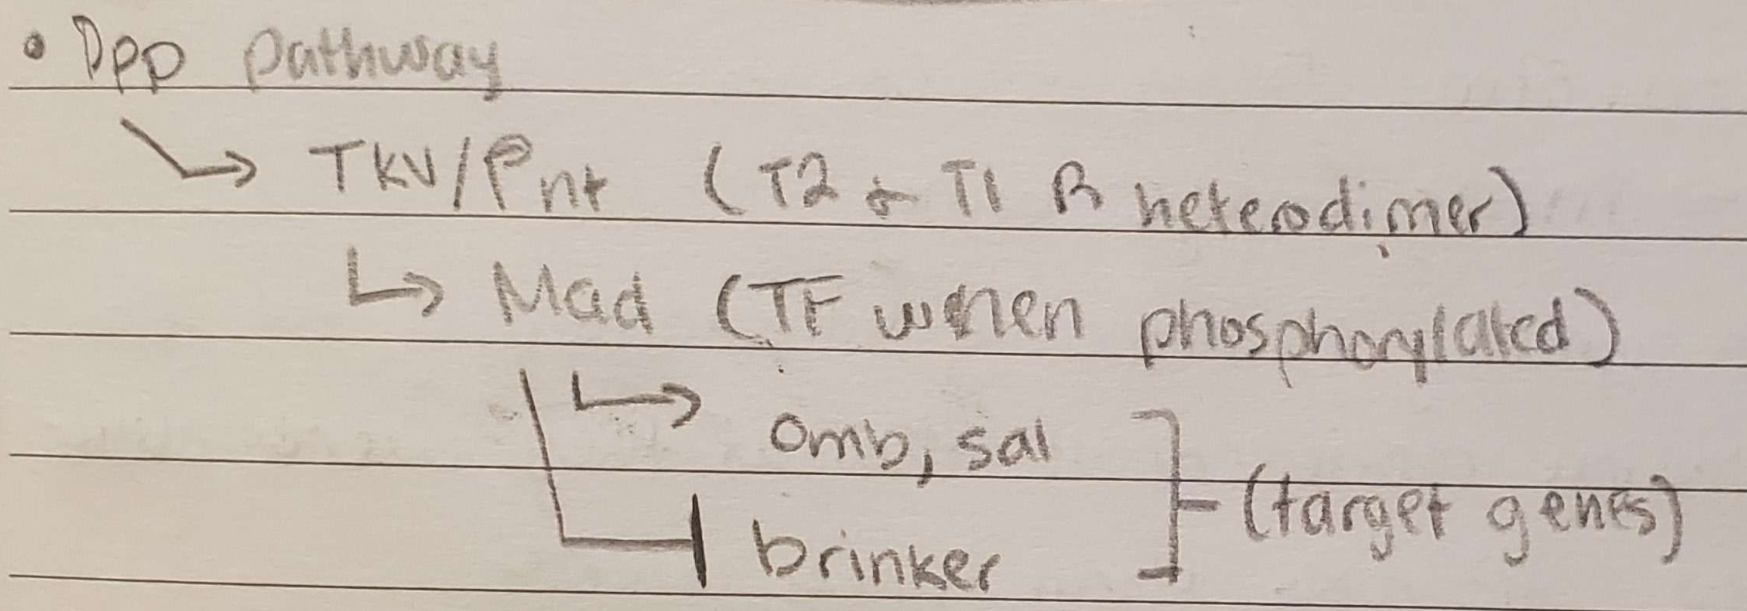 • Dpp pathway
↳ TKV/Pnt (T2 + T1 R heterodimer)
↳ Mad (TF when phosphorylated)
↳ omb, sal
⊣ brinker
(target genes)